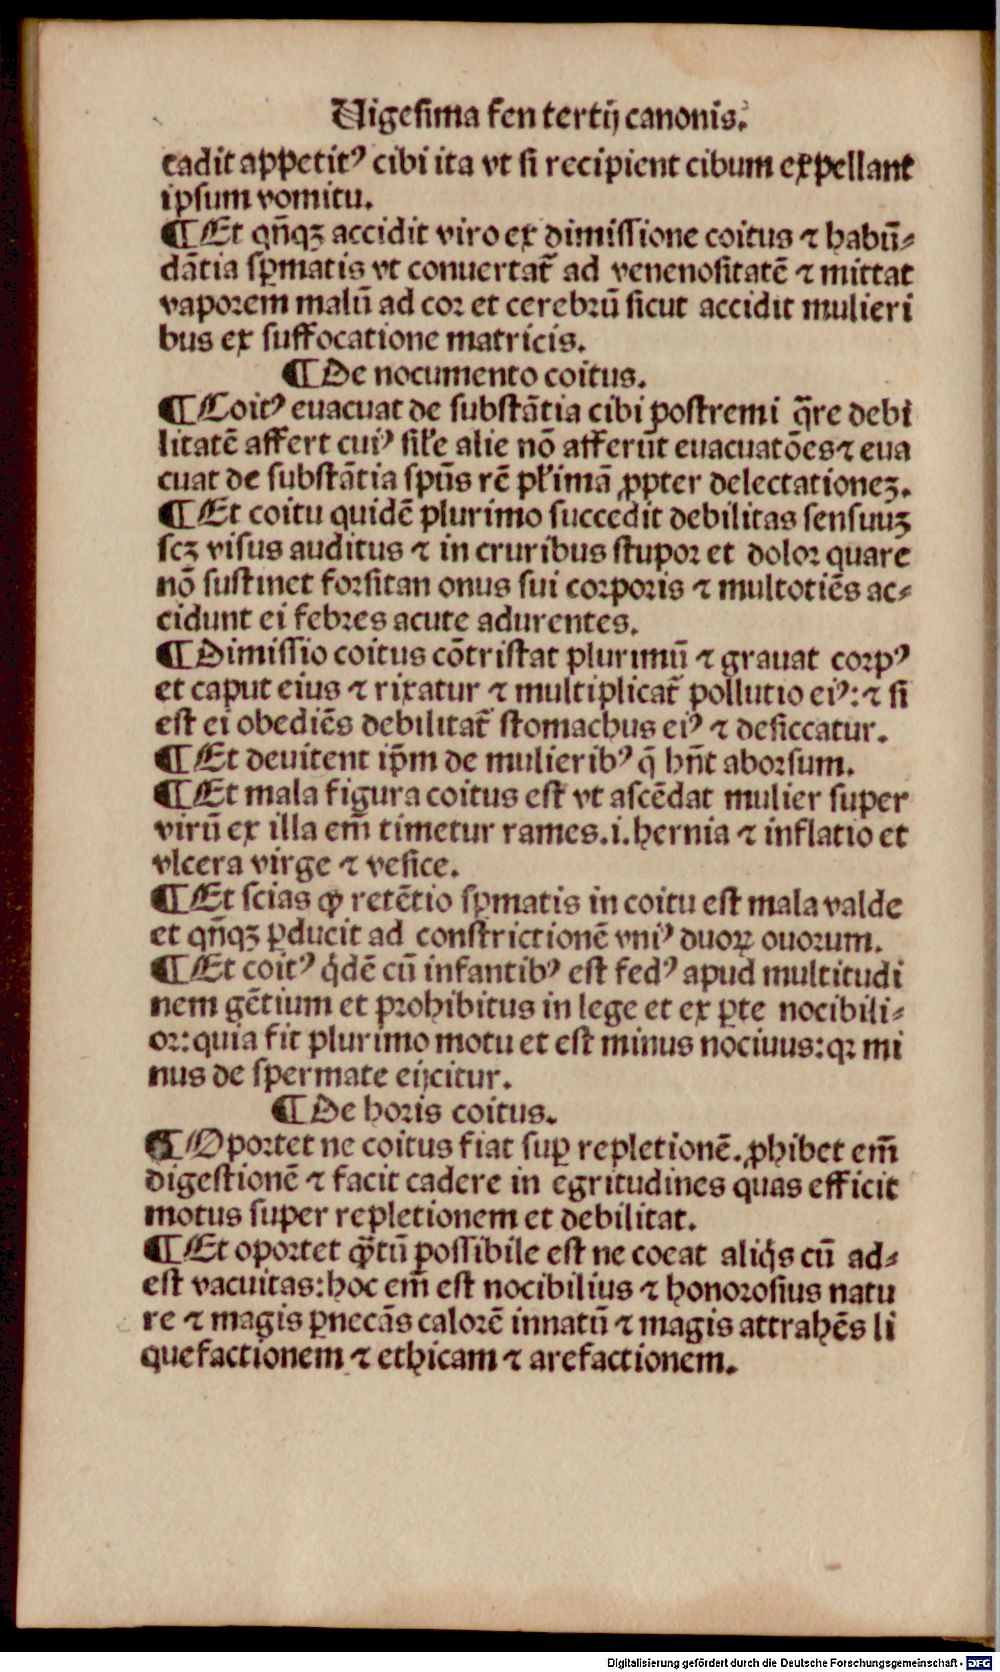 Uigesima fen tertij canonis.
cadit appetitꝰ cibi ita vt si recipient cibum expellant
ipsum vomitu.
¶ Et qn̄qꝫ accidit viro ex dimissione coitus ⁊ habū⸗
dātia sꝑmatis vt conuertat̄ ad venenositatē ⁊ mittat
vaporem malū ad cor et cerebrū sicut accidit mulieri
bus ex suffocatione matricis.
¶ De nocumento coitus.
¶ Coitꝰ euacuat de substātia cibi postremi q̄re debi
litatē affert cuiꝰ sil̄e alie nō afferūt euacuatōes ⁊ eua
cuat de substātia spūs rē pl̄imā ꝓpter delectationeꝫ.
¶ Et coitu quidē plurimo succedit debilitas sensuuꝫ
scꝫ visus auditus ⁊ in cruribus stupor et dolor quare
nō sustinet forsitan onus sui corporis ⁊ multotiēs ac⸗
cidunt ei febres acute adurentes.
¶ Dimissio coitus cōtristat plurimū ⁊ grauat corpꝰ
et caput eius ⁊ rixatur ⁊ multiplicat̄ pollutio eiꝰ: ⁊ si
est ei obediēs debilitat̄ stomachus eiꝰ ⁊ desiccatur.
¶ Et deuitent ip̄m de mulieribꝰ q̄ hn̄t aborsum.
¶ Et mala figura coitus est vt ascēdat mulier super
virū ex illa em̄ timetur rames .i. hernia ⁊ inflatio et
vlcera virge ⁊ vesice.
¶ Et scias ꝙ retētio sꝑmatis in coitu est mala valde
et qn̄qꝫ ꝑducit ad constrictionē vniꝰ duoꝝ ouorum.
¶ Et coitꝰ qͥdē cū infantibꝰ est fedꝰ apud multitudi
nem gētium et prohibitus in lege et ex ꝑte nocibili⸗
or: quia fit plurimo motu et est minus nociuus: qꝛ mi
nus de spermate eijcitur.
¶ De horis coitus.
¶ Oportet ne coitus fiat suꝑ repletionē. ꝓhibet em̄
digestionē ⁊ facit cadere in egritudines quas efficit
motus super repletionem et debilitat.
¶ Et oportet ꝙ̄tū possibile est ne coeat aliqͥs cū ad⸗
est vacuitas: hoc em̄ est nocibilius ⁊ honorosius natu
re ⁊ magis ꝑnecās calorē innatū ⁊ magis attrahēs li
quefactionem ⁊ ethicam ⁊ arefactionem.
Digitalisierung gefördert durch die Deutsche Forschungsgemeinschaft - DFG